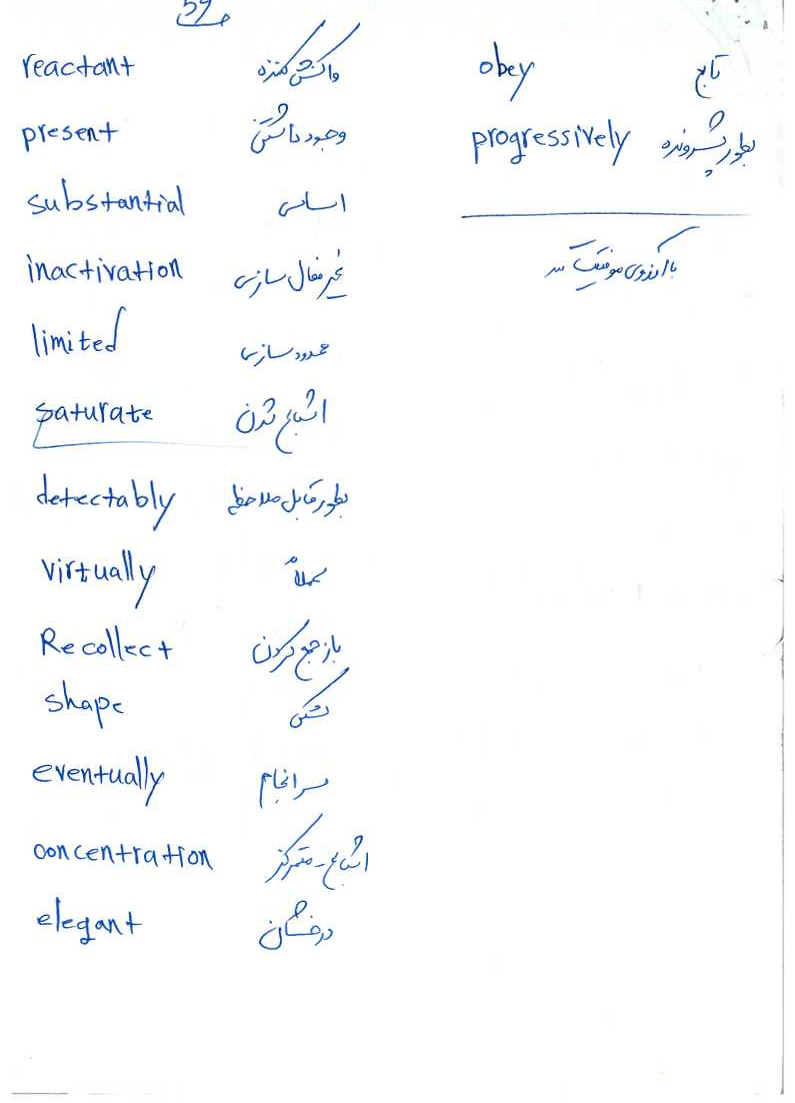 reactant واکنش کننده
present وجود داشتن
substantial اساسی
inactivation غیر فعال سازی
limited محدود سازی
saturate اشباع شدن
detectably بطور قابل ملاحظه
virtually عملاً
Recollect باز جمع کردن
shape شکل
eventually سرانجام
concentration اشباع - متمرکز
elegant درخشان
obey تابع
progressively بطور پیشرونده
با آرزوی موفقیت